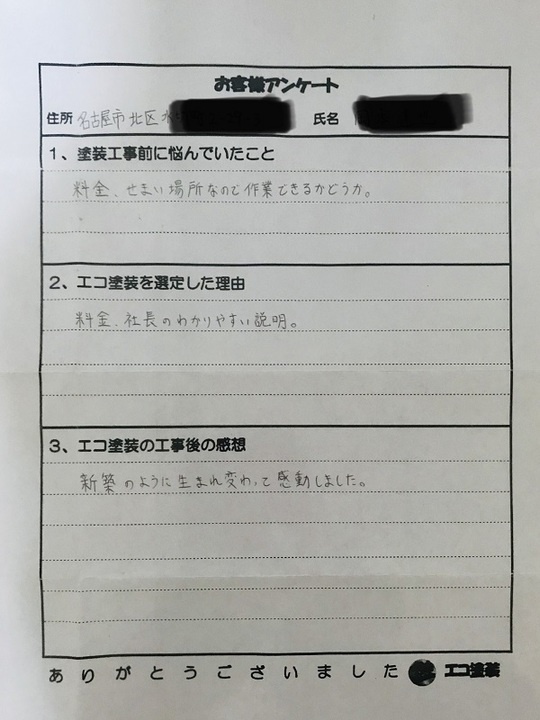 お客様アンケート
住所 名古屋市北区 氏名
1、塗装工事前に悩んでいたこと
料金、せまい場所なので作業できるかどうか。
2、エコ塗装を選定した理由
料金、社長のわかりやすい説明。
3、エコ塗装の工事後の感想
新築のように生まれ変わって感動しました。
ありがとうございました エコ塗装